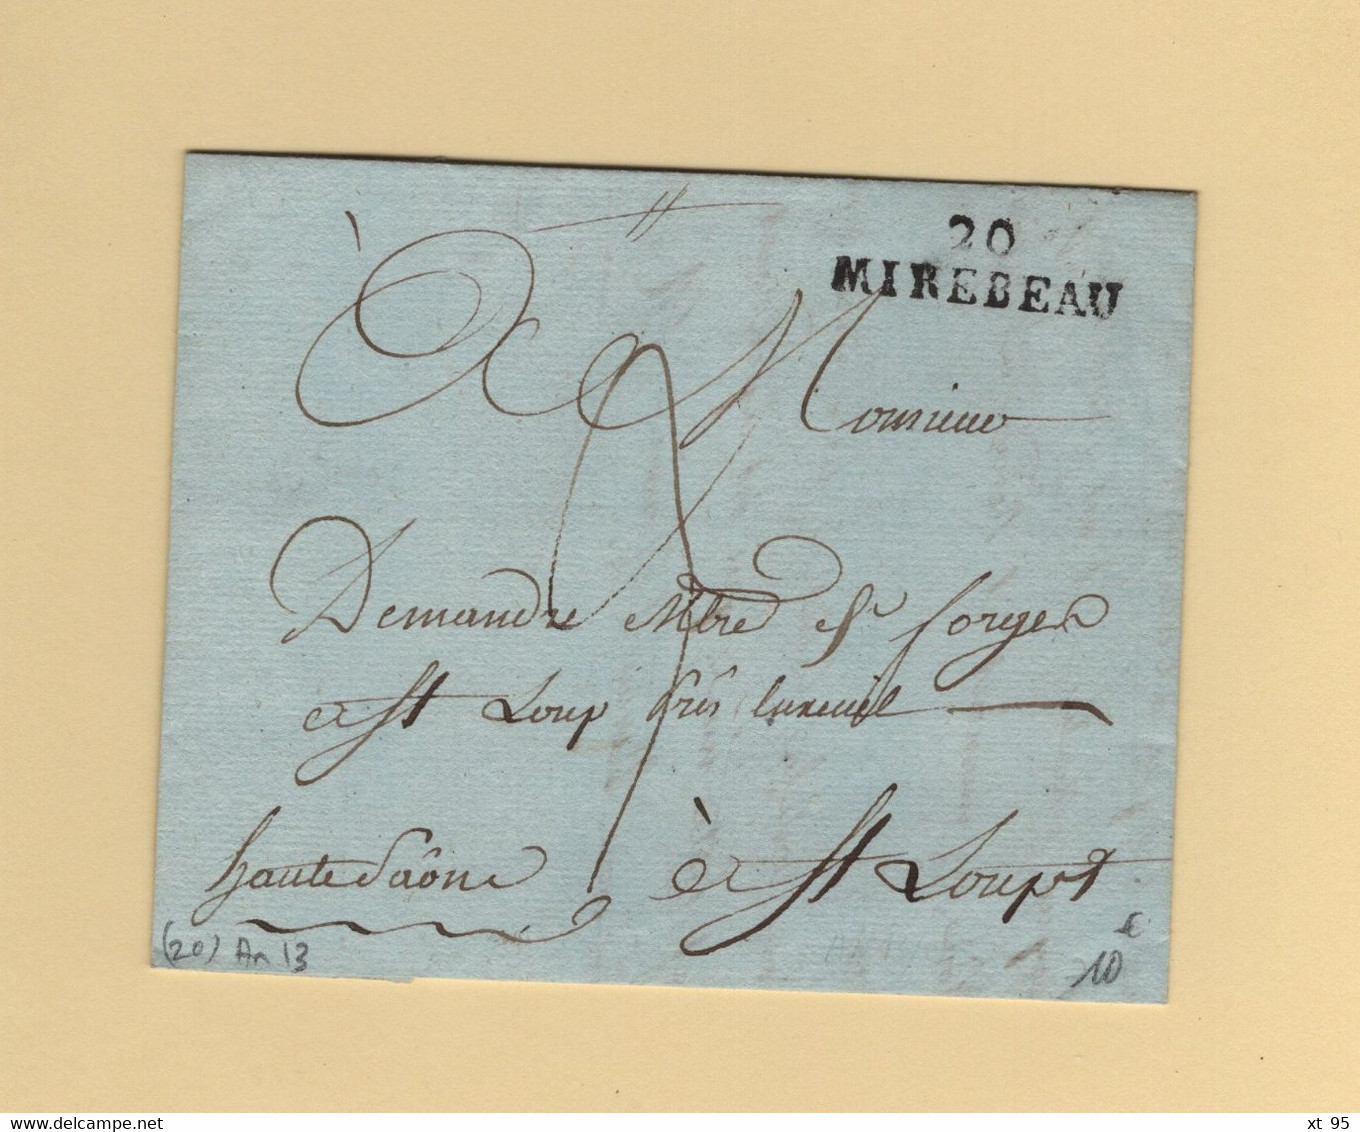 20
MIREBEAU
À Monsieur
Demandre Mtre de forges
à St Loup près luxeuil
haute Saône
à St Loup
(20) An 13
€
10
delcampe.net
xt_95